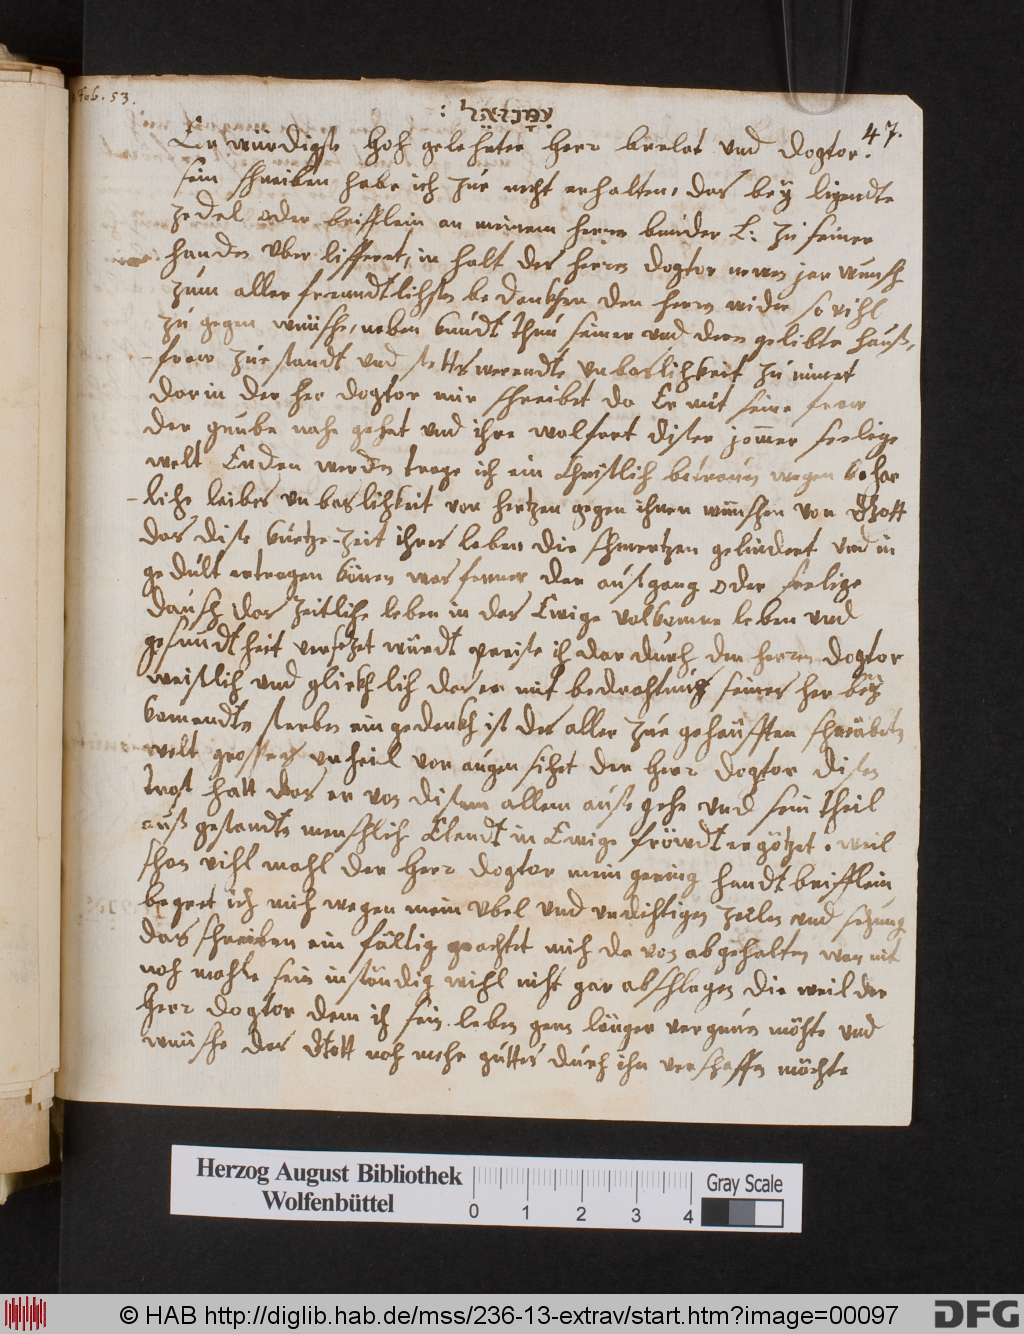 Feb. 53.
עמנואל :
47.
Er würdigste hoh gelehrter herr brelat und dogtor.
sein schreiben habe ich zue recht erhalten, das bey ligendte
zedel oder briefflein an meinem herrn bruder L: zu seiner
handen uber liffert, in halt des herrn dogtor newen jar wunsch
zum aller freundtlichsten be dankhen den herrn wider so vihl
zu gegen wünsche, neben kundt thun seiner und dero gelibte hauß,
-frow zue standt und stetts werendte unbaslihkeit zu nimet
dorin der her dogtor mir schreibet da Er mit seine frow
der gruube nahe gehet und ihre wolfart diser jomer seelige
welt Enden werden trage ich ein Christlich wegen
-liche leibes unbaslihkeit von hertzen gegen ihnen wünschen von Gott
das dise kurtze-zeit ihres leben die schmertzen gelindert und in
gedult ertragen könen was ferner der außgang oder seelige
dausch das zeitliche leben in das Ewige volkomne leben und
gesundtheit versetzet würdt preise ich dar durch den herrn dogtor
weislich und gliekhlich das er mit bedrahtung seiner her bey
komendts sterben ein gedenkh ist des aller zue gehäufften
welt grosses unheil vor augen sihet der herr dogtor disen
trost hatt das er von disem allem auß gehe und sein theil
auß gestandts menschlih Elendt in Ewige fröwdt ergötzet. weil
schon vihl mahl der herr dogtor mein gering handt briefflein
begert ich mich wegen mein ubel und undichtigen zeilen und setzung
das schreiben ein fältig geachtet mich da von abgehalten wan mit
noh mahls sein inständig wihl niht gar abschlagen die weil der
herr dogtor dem ich sein leben gern länger vergunen möhte und
wünsche das Gott noh mehr guttes durch ihn verschaffen möchte
Herzog August Bibliothek
Wolfenbüttel
0 1 2 3 4
Gray Scale
© HAB http://diglib.hab.de/mss/236-13-extrav/start.htm?image=00097
DFG